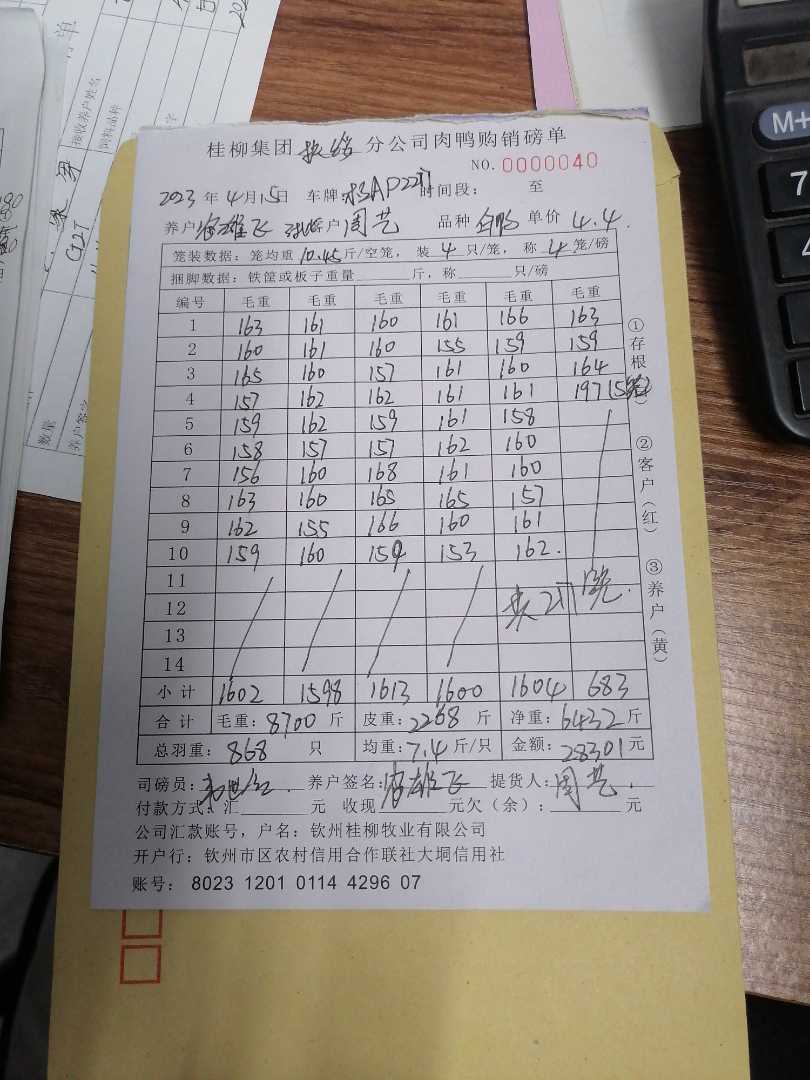 桂柳集团 分公司肉鸭购销磅单
NO.0000040
2023年4月15日 车牌 AP2271 时间段: 至
养户 雄飞 户 周艺 品种 白鸭 单价 4.4
笼装数据: 笼均重 10.45 斤/空笼, 装 4 只/笼, 称 4 笼/磅
捆脚数据: 铁筐或板子重量 斤, 称 只/磅
编号 毛重 毛重 毛重 毛重 毛重 毛重
1 163 161 160 161 166 163
2 160 161 160 155 159 159
3 165 160 157 161 160 164
4 157 162 162 161 161 197(5笼)
5 159 162 159 161 158
6 158 157 157 162 160
7 156 160 168 161 160
8 163 160 165 165 157
9 162 155 166 160 161
10 159 160 159 153 162.
11
12
13
14
小计 1602 1598 1613 1600 1604 683
合计 毛重: 8700 斤 皮重: 2268 斤 净重: 6432 斤
总羽重: 868 只 均重: 7.4 斤/只 金额: 28301 元
司磅员: 养户签名: 雄飞 提货人: 周艺
付款方式: 汇 元 收现 元欠(余): 元
公司汇款账号, 户名: 钦州桂柳牧业有限公司
开户行: 钦州市区农村信用合作联社大垌信用社
账号: 8023 1201 0114 4296 07
①存根
②客户(红)
③养户(黄)
接收养户姓名
饲料品种
数量
养户签字
M+
7
4